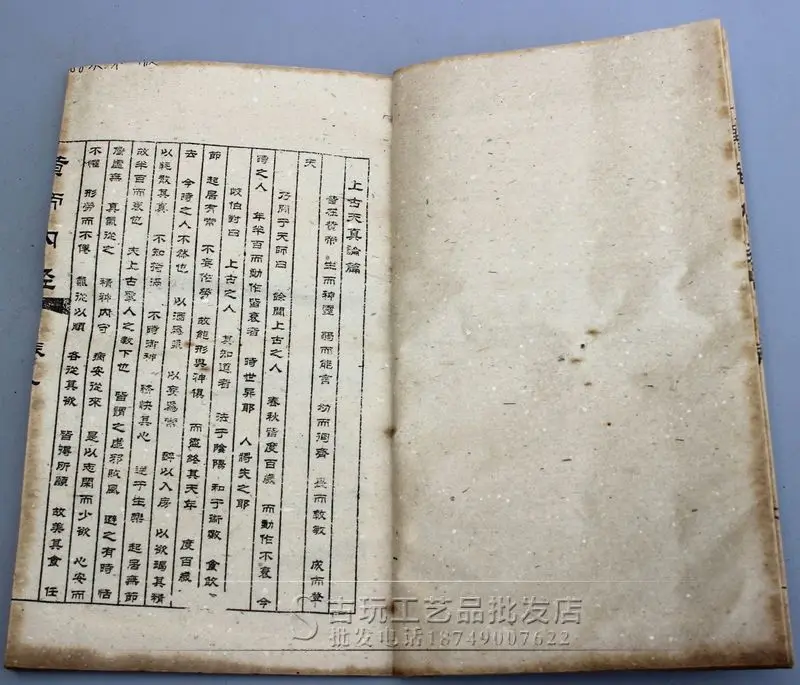 上古天真論篇
昔在黃帝 生而神靈 弱而能言 幼而徇齊 長而敦敏 成而登
天
乃問于天師曰 餘聞上古之人 春秋皆度百歲 而動作不衰 今
時之人 年半百而動作皆衰者 時世異耶 人將失之耶
岐伯對曰 上古之人 其知道者 法于陰陽 和于術數 食飲
節 起居有常 不妄作勞 故能形與神俱 而盡終其天年 度百歲
去 今時之人不然也 以酒為漿 以妄為常 醉以入房 以欲竭其精
以耗散其真 不知持滿 不時御神 務快其心 逆于生樂 起居無節
故半百而衰也 夫上古聖人之教下也 皆謂之虛邪賊風 避之有時 恬
憺虛無 真氣從之 精神內守 病安從來 是以志閑而少欲 心安而
不懼 形勞而不倦 氣從以順 各從其欲 皆得所願 故美其食 任
黃帝內經
古玩工艺品批发店
批发电话18749007622